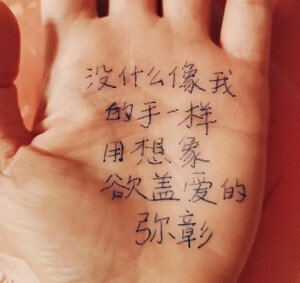 没什么像我
的手一样
用想象
欲盖爱的
弥彰